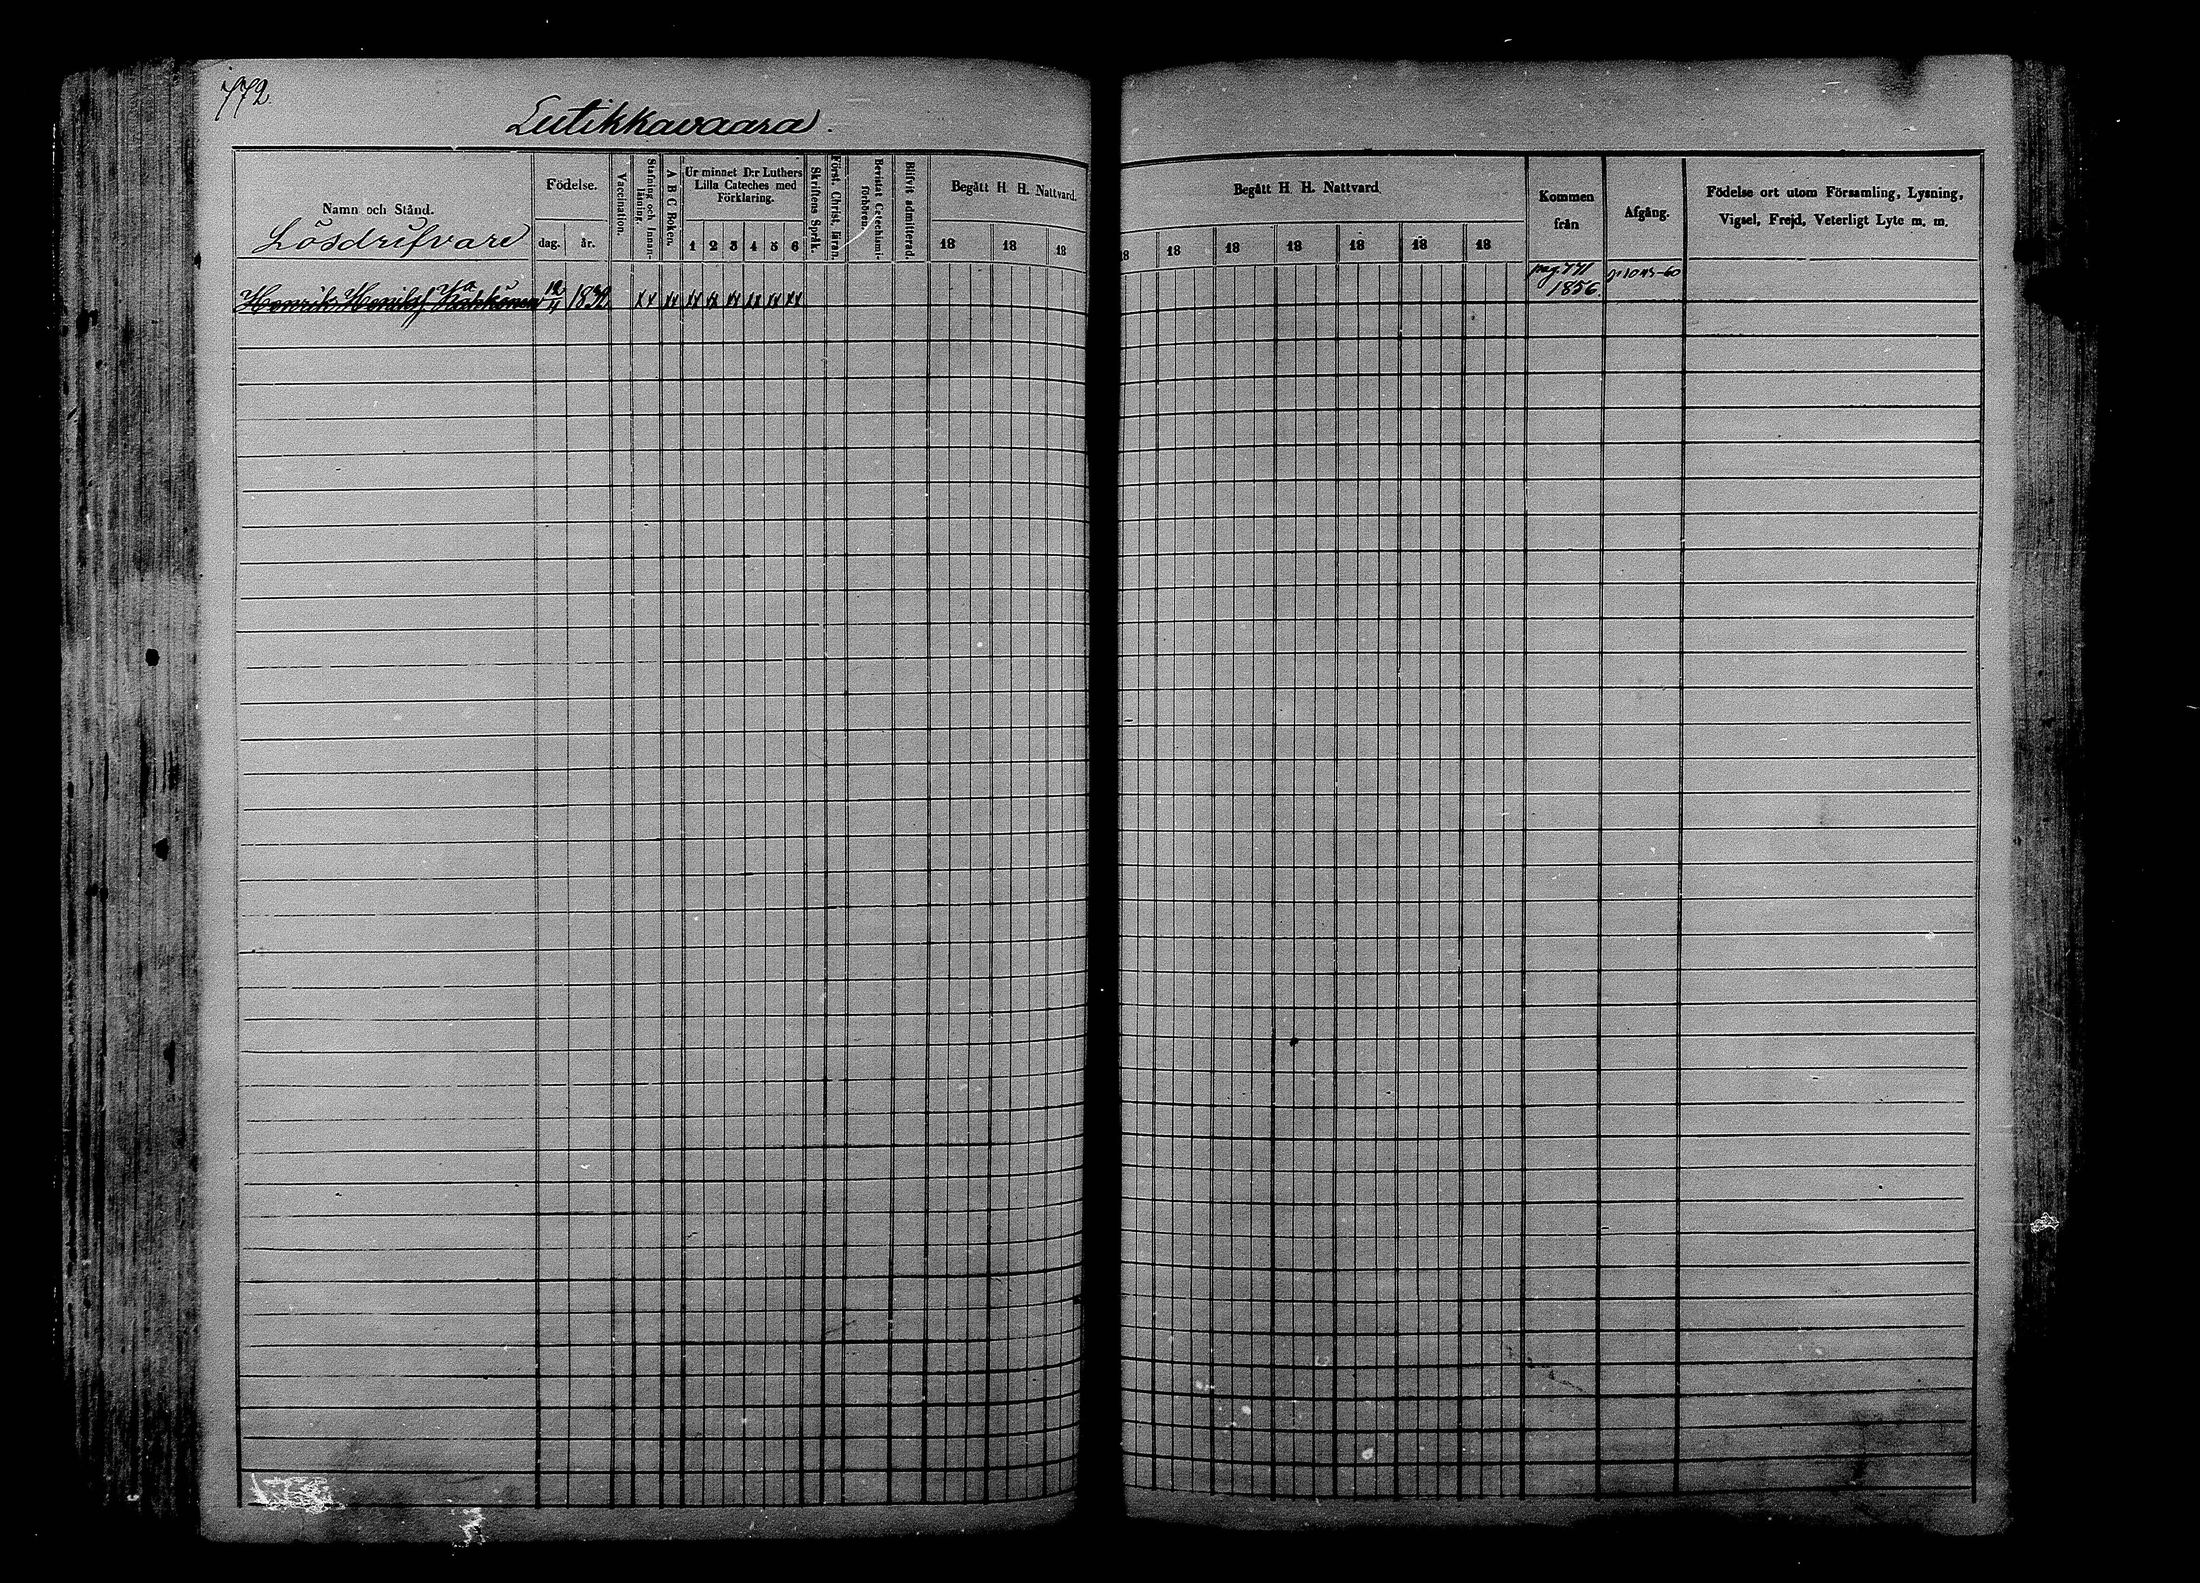 772
Lutikkavaara.
Namn och Stånd.
Lösdrifvare
Födelse.
dag. år.
Vaccination.
Stafning och Innanläsning.
A B C Boken.
Ur minnet D:r Luthers Lilla Cateches med Förklaring.
1 2 3 4 5 6
Skriftens Språk.
Först. Christ. läran.
Bevistat Catechismiförhören.
Blifvit admitterad.
Begått H. H. Nattvard.
18 18 18
Begått H. H. Nattvard
18 18 18 18 18 18 18
Kommen från
Afgång.
Födelse ort utom Församling, Lysning, Vigsel, Frejd, Veterligt Lyte m. m.
Henrik Henriksf 12/4 1832 xx xx xx xx xx xx xx xx pag. 771 1856.